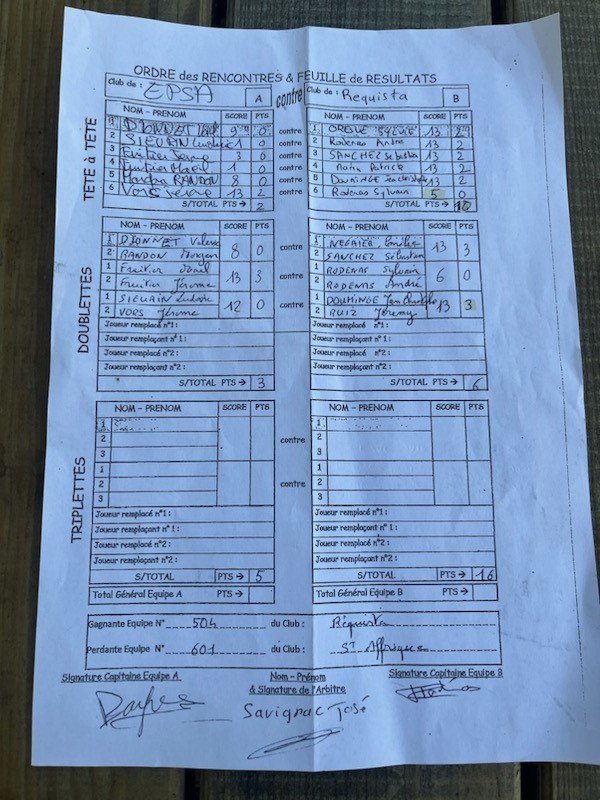 ORDRE des RENCONTRES & FEUILLE de RESULTATS
Club de : EPSA A contre Club de : Requista B
TETE à TETE
NOM - PRENOM SCORE PTS NOM - PRENOM SCORE PTS
1 DIONNET 9 0 contre 1 SYLVIE 13 2
2 SIEURIN Ludovic 1 0 contre 2 Rodenas Andre 13 2
3 Fruitier 3 contre 3 SANCHEZ Sebastian 13 2
4 1 0 contre 4 Patrick 13 2
5 RANDON 8 0 contre 5 DOUMINGE Jean Christophe 13 2
6 VORS Jerome 13 2 contre 6 Rodenas Sylvain 5 0
S/TOTAL PTS → 2 S/TOTAL PTS → 10
DOUBLETTES
NOM - PRENOM SCORE PTS NOM - PRENOM SCORE PTS
1 DIONNET 8 0 contre 1 NEGRIER Emilie 13 3
2 RANDON Morgan 2 SANCHEZ Sébastian
1 Fruitier 13 3 contre 1 RODENAS Sylvain 6 0
2 Fruitier Jérôme 2 RODENAS André
1 SIEURIN Ludovic 12 0 contre 1 DOUMINGE Jean Christophe 13 3
2 VORS Jérôme 2 RUIZ Jérémy
Joueur remplacé n°1 : Joueur remplacé n°1 :
Joueur remplaçant n° 1 : Joueur remplaçant n°1 :
Joueur remplacé n°2 : Joueur remplacé n°2 :
Joueur remplaçant n°2 : Joueur remplaçant n°2 :
S/TOTAL PTS → 3 S/TOTAL PTS → 6
TRIPLETTES
NOM - PRENOM SCORE PTS NOM - PRENOM SCORE PTS
1 1
2 contre 2
3 3
1 1
2 contre 2
3 3
Joueur remplacé n°1 : Joueur remplacé n°1 :
Joueur remplaçant n°1 : Joueur remplaçant n°1 :
Joueur remplacé n°2 : Joueur remplacé n°2 :
Joueur remplaçant n°2 : Joueur remplaçant n°2 :
S/TOTAL PTS → 5 S/TOTAL PTS → 16
Total Général Equipe A PTS → Total Général Equipe B PTS →
Gagnante Equipe N° 504 du Club : Réquista
Perdante Equipe N° 601 du Club : St Affrique
Signature Capitaine Equipe A Nom - Prénom Signature Capitaine Equipe B
& Signature de l'Arbitre
Savignac José